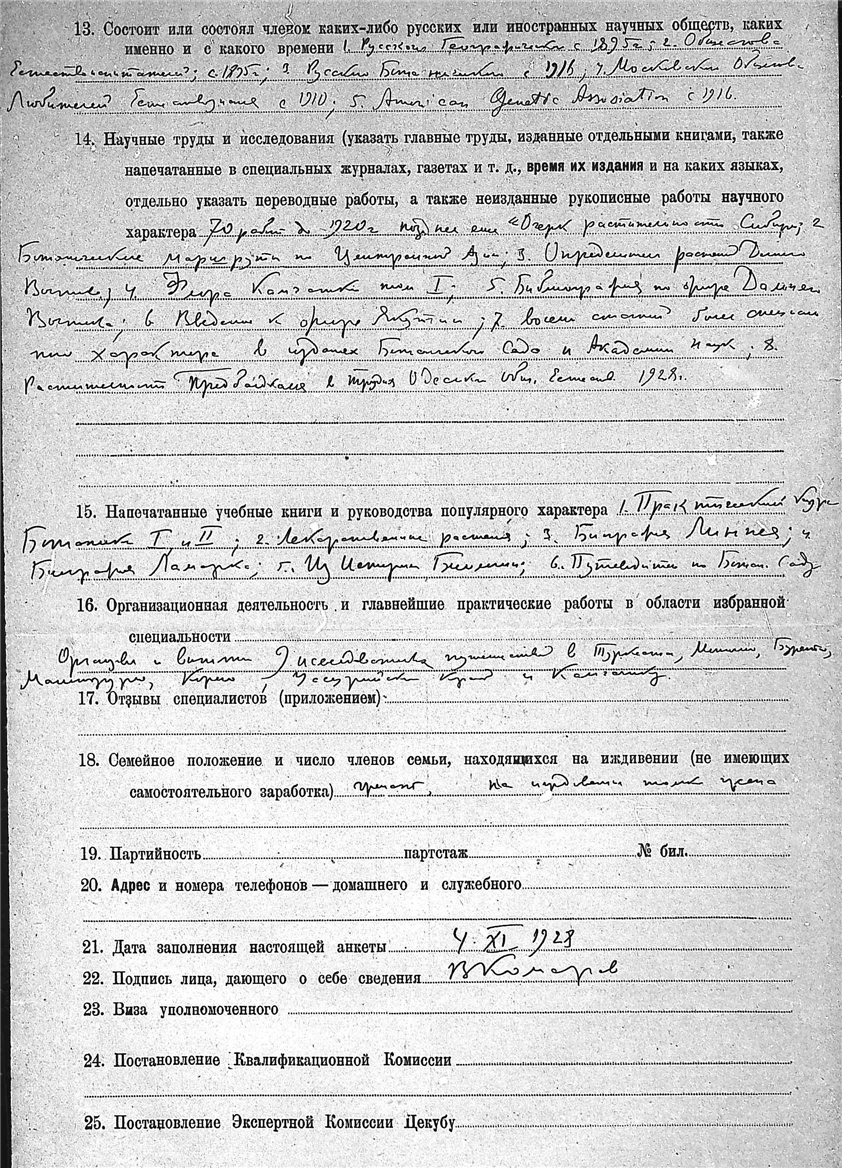 13. Состоит или состоял членом каких-либо русских или иностранных научных обществ, каких
именно и с какого времени 1. Русского Географическ с 1895 г; 2. Общества
Естествоиспытателей; с 1895 г; 3. Русского Ботанического с 1916; 4. Московского Общ.
Любителей Естествознания с 1910; 5. American Genetic Association с 1916.
14. Научные труды и исследования (указать главные труды, изданные отдельными книгами, также
напечатанные в специальных журналах, газетах и т. д., время их издания и на каких языках,
отдельно указать переводные работы, а также неизданные рукописные работы научного
характера 70 работ до 1920 г позднее еще «Очерк растительности Сибири; 2
Ботанические маршруты по Центральной Азии; 3. Определитель растений Дальнего
Востока; 4. Флора Камчатки том I; 5. Библиография по флоре Дальнего
Востока; 6 Введение к флоре Якутии; 7. восемь статей более специаль
ного характера в изданиях Ботанического Сада и Академии Наук; 8.
Растительность Прибайкалья в трудах Одесского Общ. Естеств. 1928 г.
15. Напечатанные учебные книги и руководства популярного характера 1. Практический курс
Ботаники I и II; 2. Лекарственные растения; 3. Биография Линнея; 4.
Биография Ламарка; 5. Из Истории Биологии; 6. Путеводитель по Ботан. Саду
16. Организационная деятельность и главнейшие практические работы в области избранной
специальности
Организовал и выполнил путешествий в Туркестан, Монголию, Бурятию,
Манчжурию, Корею, Уссурийский Край и Камчатку.
17. Отзывы специалистов (приложением)
18. Семейное положение и число членов семьи, находящихся на иждивении (не имеющих
самостоятельного заработка) женат, на иждивении только жена
19. Партийность партстаж № бил.
20. Адрес и номера телефонов — домашнего и служебного
21. Дата заполнения настоящей анкеты 4 XI 1928
22. Подпись лица, дающего о себе сведения В Комаров
23. Виза уполномоченного
24. Постановление Квалификационной Комиссии
25. Постановление Экспертной Комиссии Цекубу